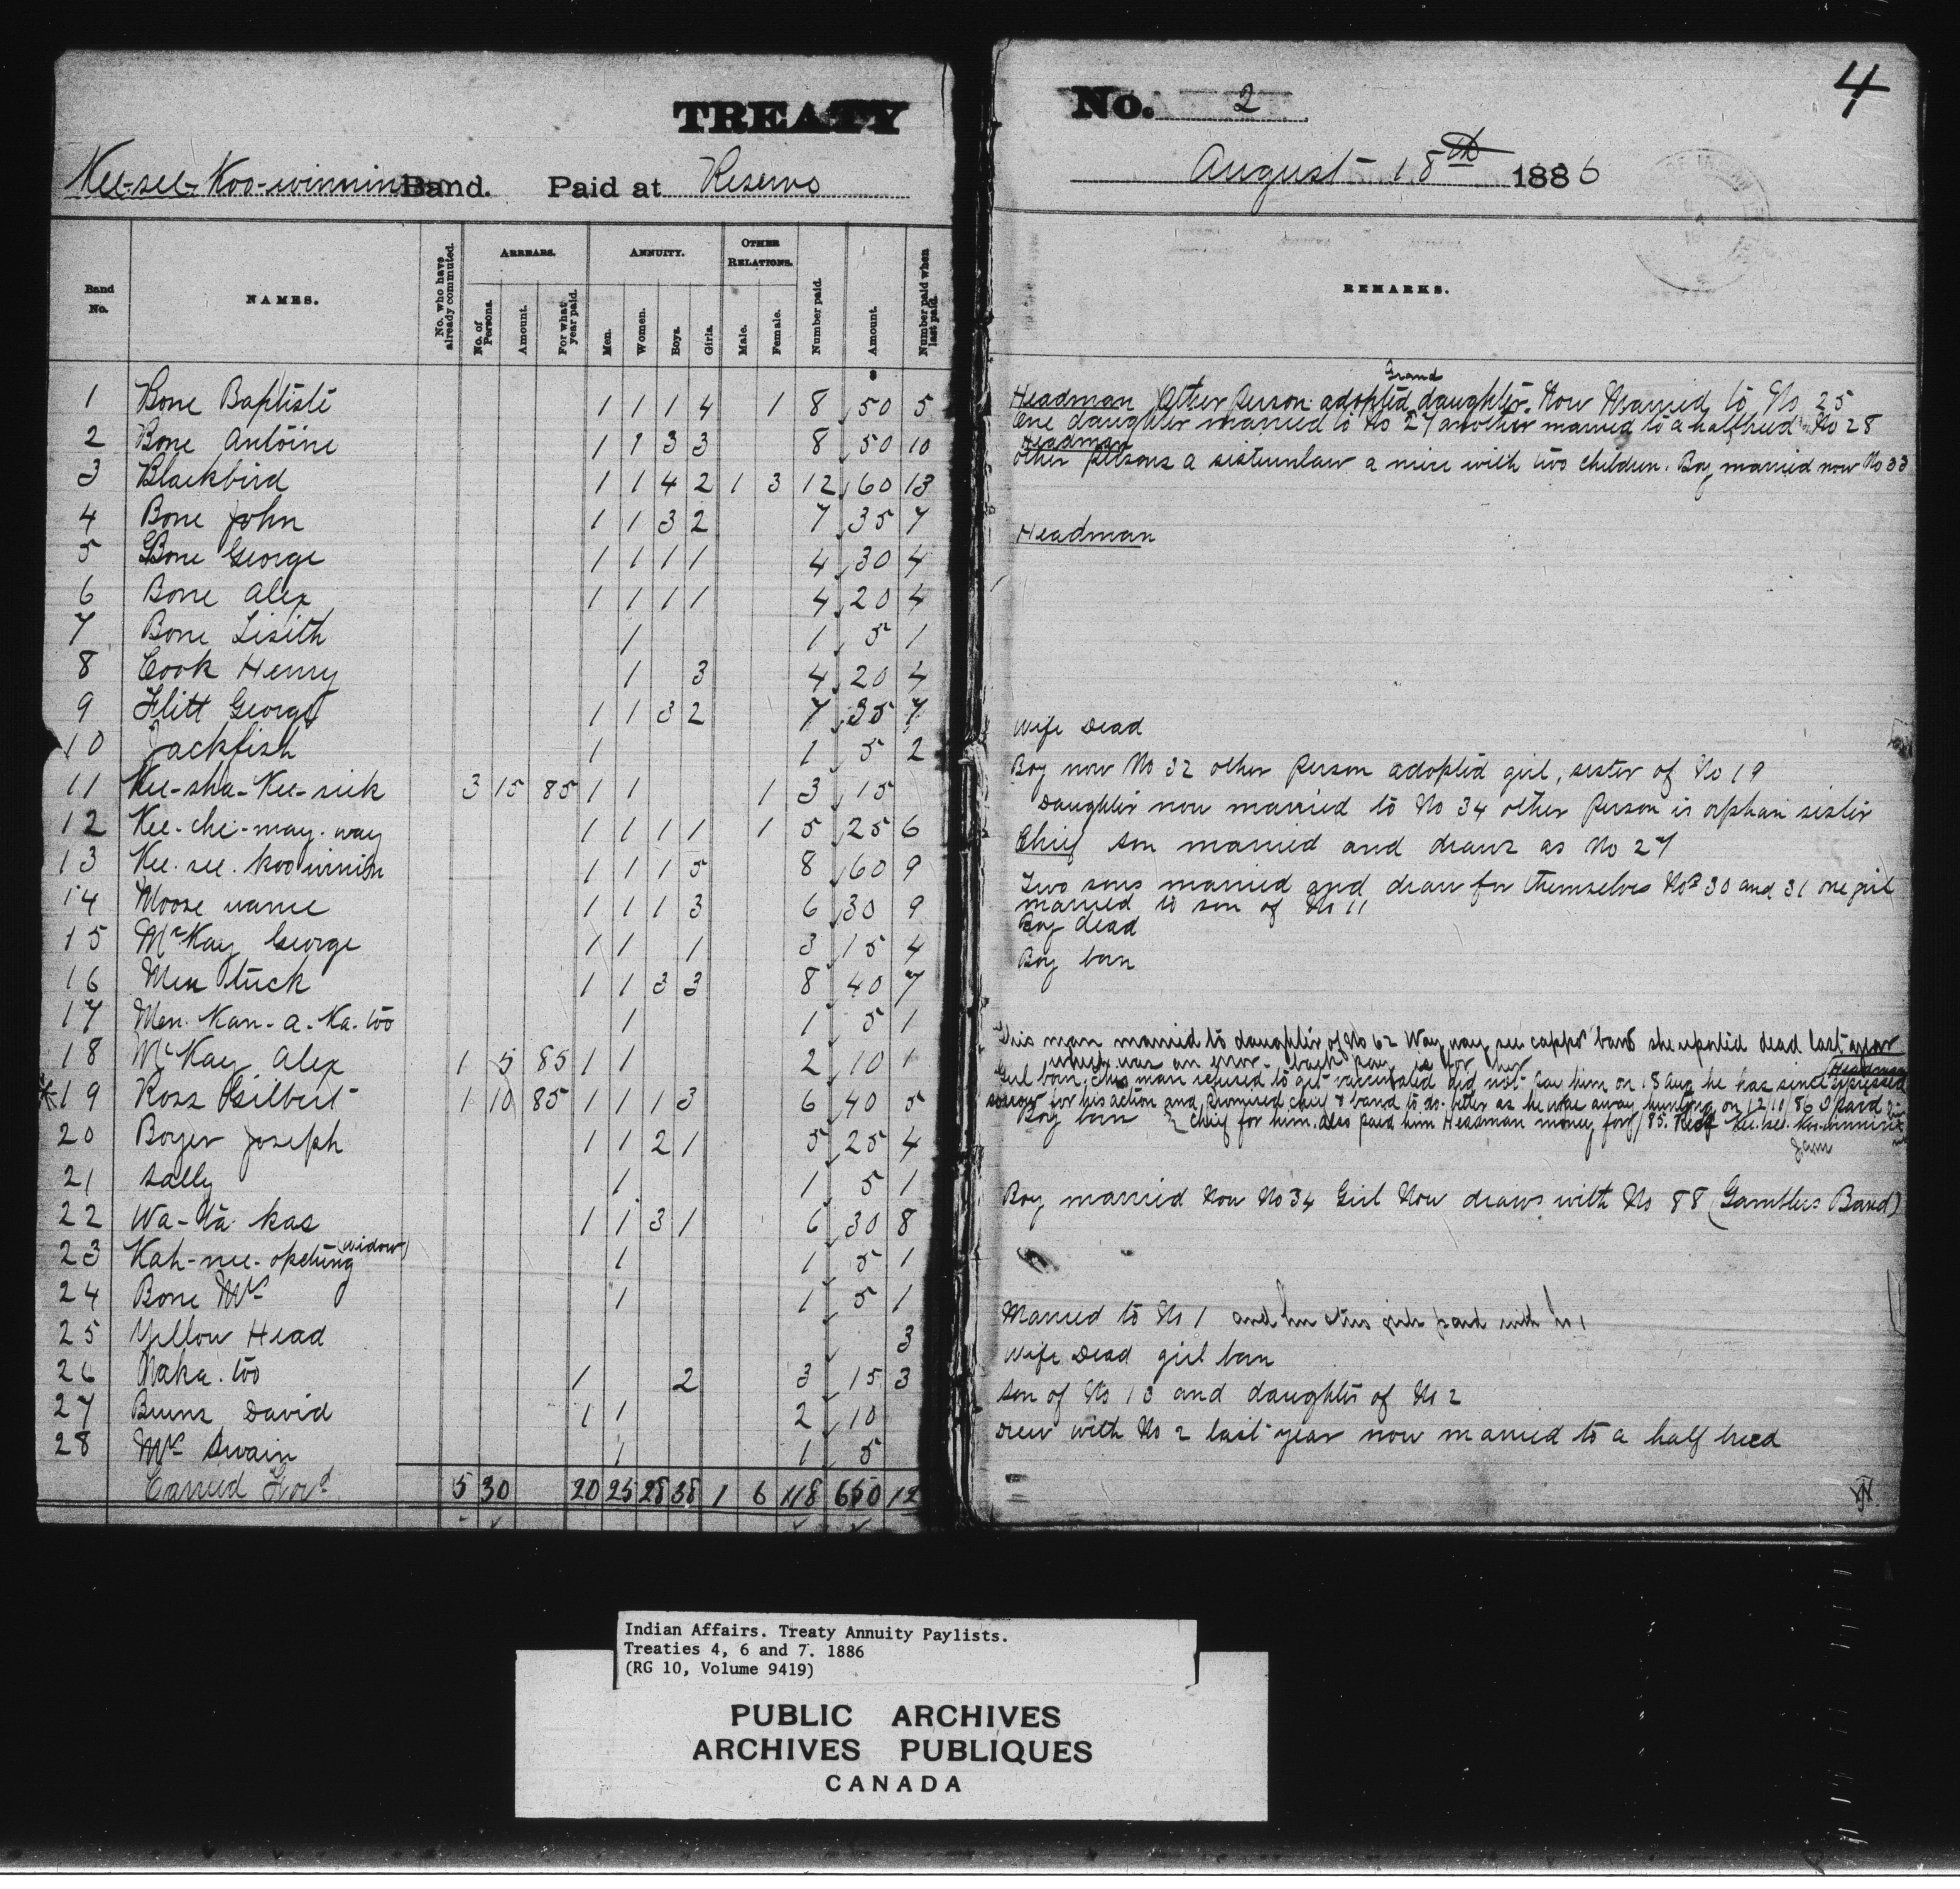 TREATY
Kee-see-Koo-winnin Band. Paid at Reserve
Band No. NAMES. No. who have already commuted. ARREARS. No. of Persons. Amount. For what year paid. ANNUITY. Men. Women. Boys. Girls. OTHER RELATIONS. Male. Female. Number paid. Amount. Number paid when last paid.
1 Bone Baptiste 1 1 1 4 1 8 50 5
2 Bone Antoine 1 1 3 3 8 50 10
3 Blackbird 1 1 4 2 1 3 12 60 13
4 Bone John 1 1 3 2 7 35 7
5 Bone George 1 1 1 1 4 30 4
6 Bone Alex 1 1 1 1 4 20 4
7 Bone Lisith 1 1 5 1
8 Cook Henry 1 3 4 20 4
9 Flitt George 1 1 3 2 7 35 7
10 Jackfish 1 1 5 2
11 Kee-sha-Kee-sick 3 15 85 1 1 1 3 15
12 Kee-che-may-way 1 1 1 1 1 5 25 6
13 Kee-see-koo winin 1 1 1 5 8 60 9
14 Moose name 1 1 1 3 6 30 9
15 McKay George 1 1 1 3 15 4
16 Men tuck 1 1 3 3 8 40 7
17 Men-Kan-a-Ka-too 1 1 5 1
18 McKay Alex 1 5 85 1 1 2 10 1
* 19 Ross Gilbert 1 10 85 1 1 1 3 6 40 5
20 Boyer Joseph 1 1 2 1 5 25 4
21 Sally 1 1 5 1
22 Wa-ta-kas 1 1 3 1 6 30 8
23 Kah-nee-opeting (widow) 1 1 5 1
24 Bone Mrs 1 1 5 1
25 Yellow Head 3
26 Naka-too 1 2 3 15 3
27 Burns David 1 1 2 10
28 Mrs Swain 1 1 5
Carried Ford 5 30 20 25 28 38 1 6 118 650 12
4
No. 2
August 18th 1886
REMARKS.
Headman Other Person adopted Grand daughter. Now Married to No 25
One daughter married to No 27 another married to a halfbreed No 28
Headman
other persons a sisterinlaw a niece with two children. Boy married now No 33
Headman
Wife Dead
Boy now No 32 other person adopted girl, sister of No 19
Daughter now married to No 34 other Person is orphan sister
Chief son married and draws as No 27
Two sons married and draw for themselves Nos 30 and 31 one girl
married to son of No 11
Boy dead
Boy born
This man married to daughter of No 62 Way way see cappo band she reported dead last year
which was an error. back pay is for her
Headman
Girl born, this man refused to get vaccinated did not pay him on 18 Aug he has since expressed
sorrow for his action and promised chief & band to do better as he was away hunting on 12/10/86 I paid
Boy born } chief for him. also paid him Headman money for /85. Kee-see-koo-winnin
Boy married Now No 34 Girl Now draws with No 88 (Gamblers Band)
Married to No 1 and paid with No 1
Wife Dead girl born
son of No 13 and daughter of No 2
Drew with No 2 last year now married to a half breed
Indian Affairs. Treaty Annuity Paylists.
Treaties 4, 6 and 7. 1886
(RG 10, Volume 9419)
PUBLIC ARCHIVES
ARCHIVES PUBLIQUES
CANADA